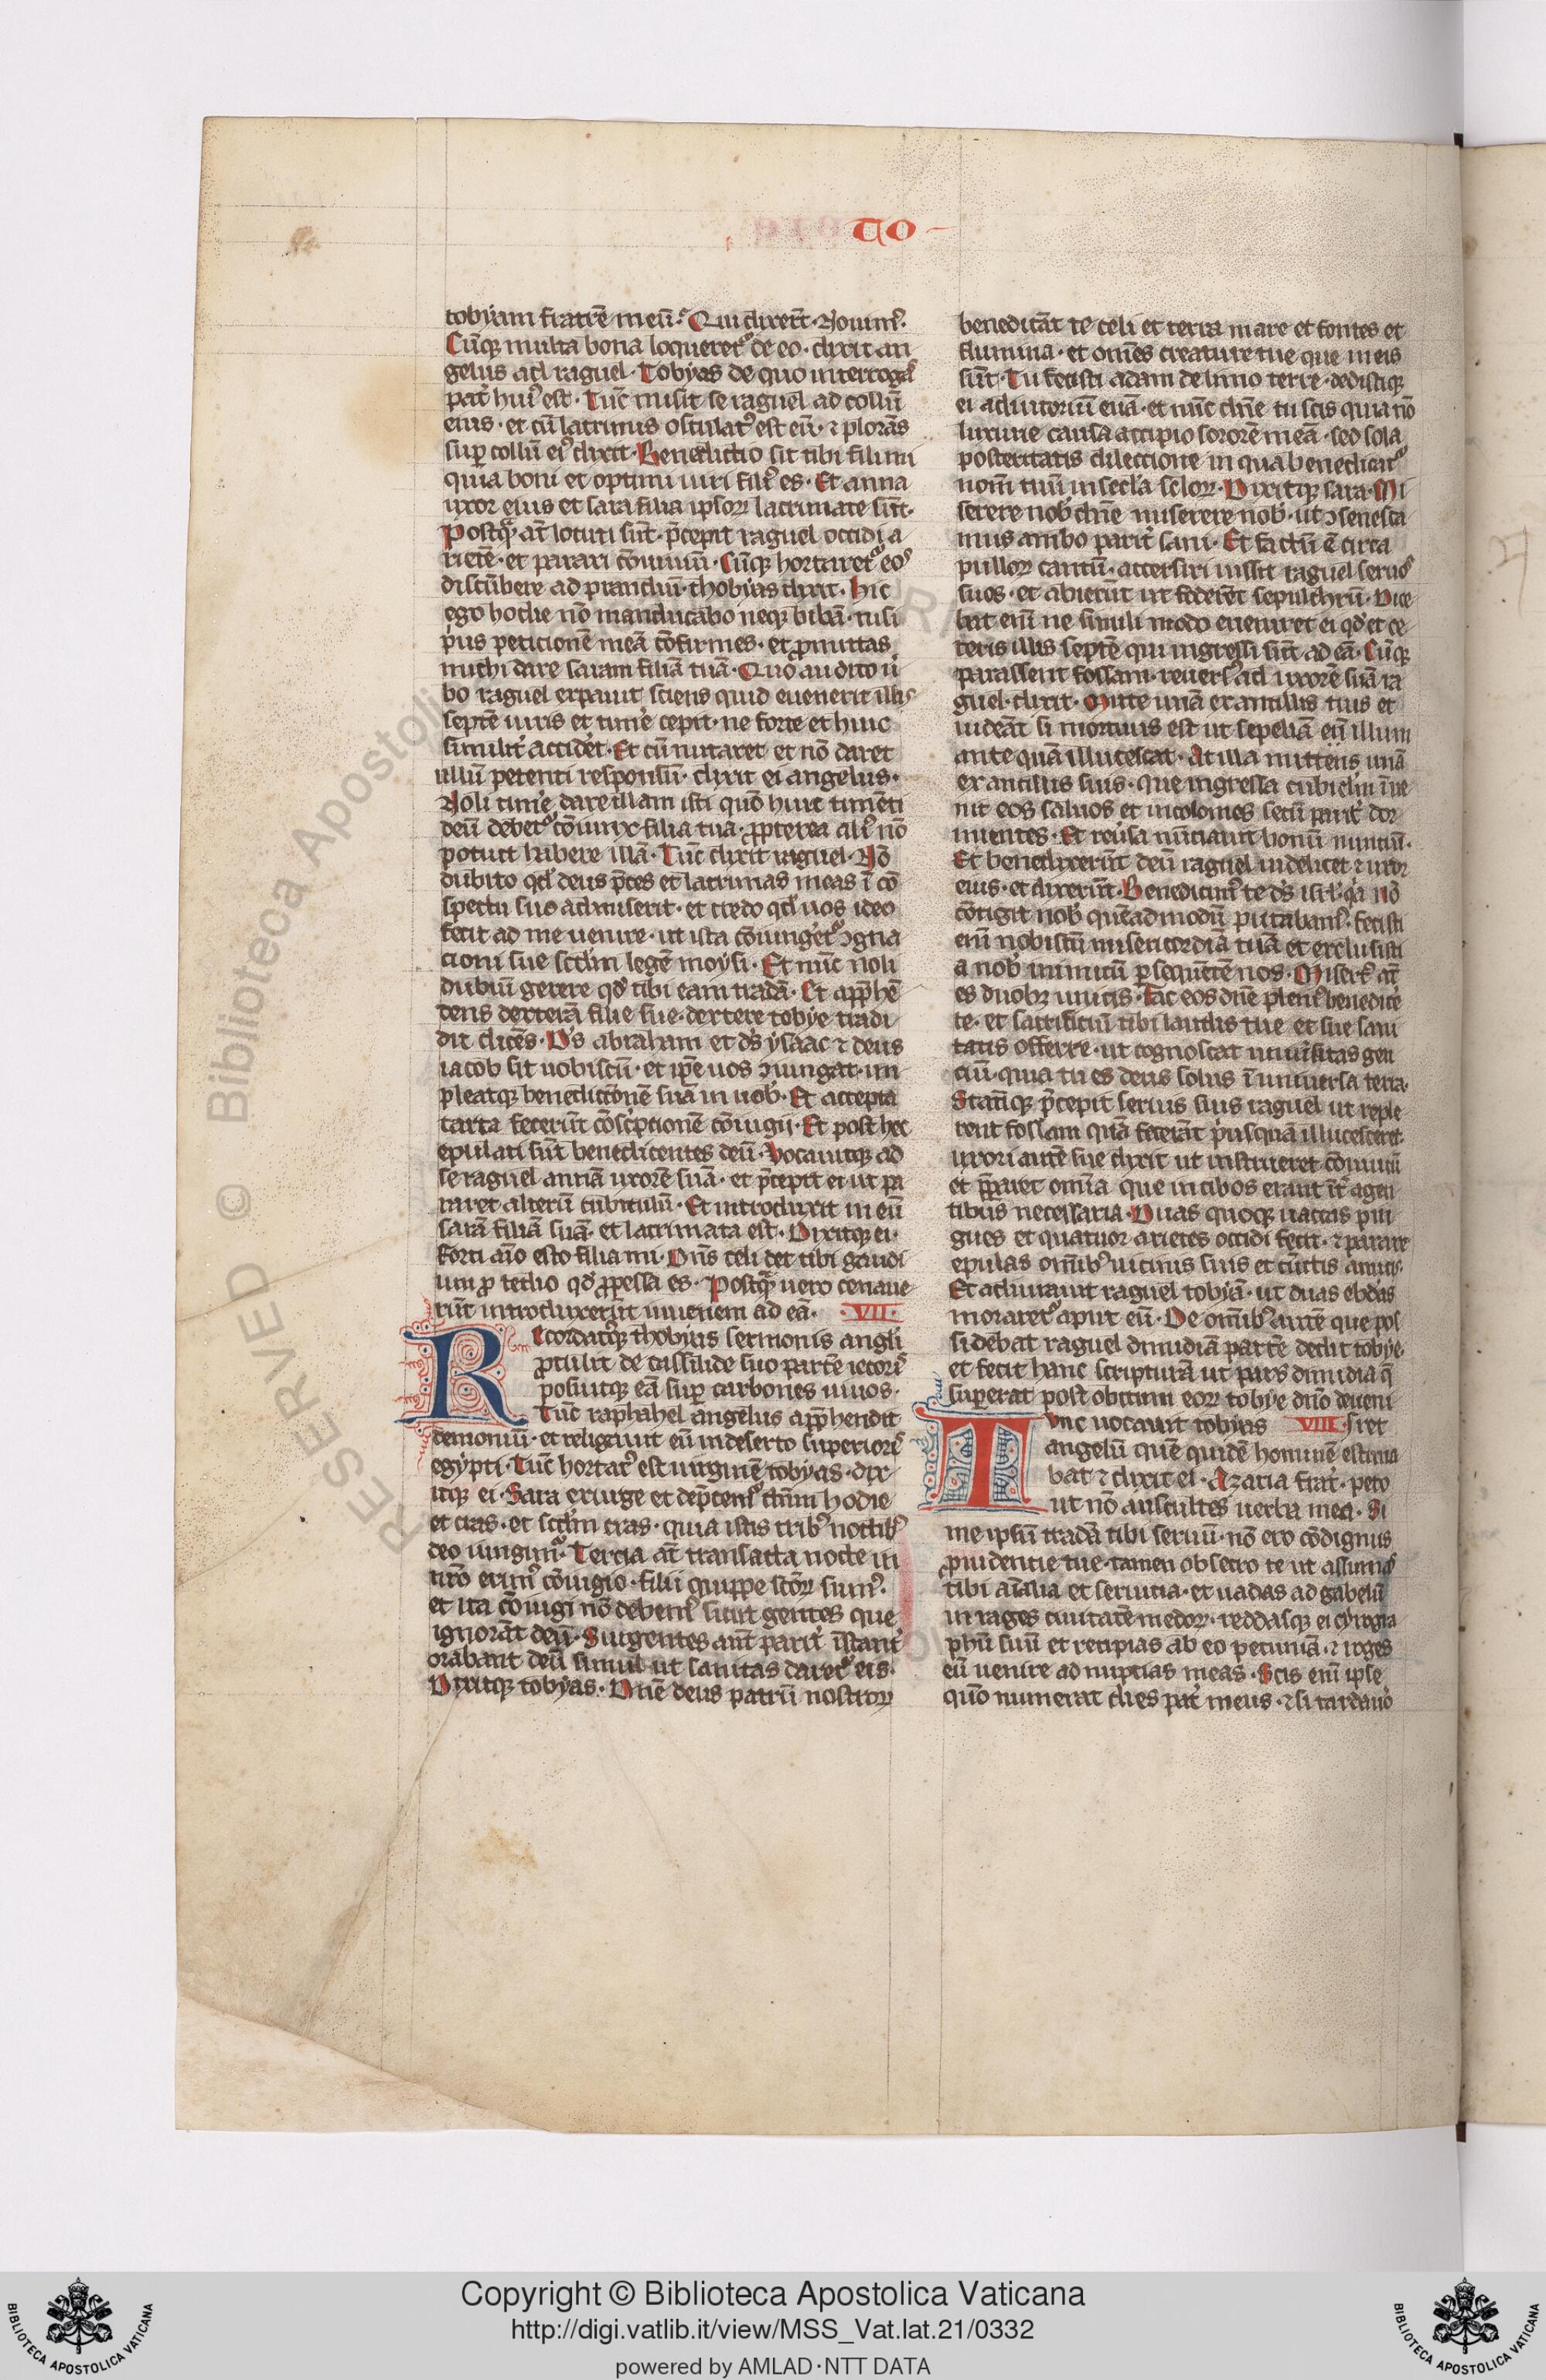 TO
tobyam fratrē meū. Qui dixert̄. Nouimꝰ.
Cūqꝫ multa bona loqueretᷣ de eo. dixit an
gelus ad raguel. Tobyas de quo interrogas
pat̓ huiꝰ est. Tūc misit se raguel ad collū
eius. et cū lacrimis osculatꝰ est eū. ⁊ plorās
suꝑ collū eiꝰ dixit. Benedictio sit tibi fili mi
quia boni et optimi uiri filiꝰ es. Et anna
uxor eius et sara filia ipsoꝝ lacrimate sūt.
Postqᷓ at̄ locuti sūt. p̄cepit raguel occidi a
rietē. et parari cōuiuiū. Cūqꝫ hortaretᷣ eos
discūbere ad prandiū. thobyas dixit. Hic
ego hodie nō manducabo neqꝫ bibā. nisi
pͥus peticionē meā cōfirmes. et ꝓmittas
michi dare saram filiā tuā. Quo audito ū
bo raguel expauit sciens quid euenerit illis
septē uiris et timē cepit. ne forte et huic
similit̓ accidet. Et cū nutaret et nō daret
ullū petenti responsū. dixit ei angelus.
Noli timē dare illam isti quō huic timēti
deū debetᷣ cōiunx filia tua. ꝓpterea aliꝰ nō
potuit habere illā. Tūc dixit raguel. Nō
dubito qd̓ deus p̄ces et lacrimas meas ī cō
spectu suo admiserit. et credo qd̓ uos ideo
fecit ad me uenire. ut ista cōiungetᷣ ꝯgna
cioni sue scd̄m legē moysi. Et nūc noli
dubiū gerere qd̓ tibi eam tradā. Et app̄hē
dens dexterā filie sue. dextere tobye tradi
dit dicēs. Ds̄ abraham et ds̄ ysaac ⁊ deus
iacob sit uobiscū. et ip̄e uos ꝯiungat. im
pleatqꝫ benedictionē suā in uob̓. Et accepta
carta fecerūt cōsc̓ptionē cōiugii. Et post hec
epulati sūt benedicentes deū. Vocauitqꝫ ad
se raguel annā uxorē suā. et p̄cepit ei ut pa
raret alterū cubiculū. Et introduxit in eū
sarā filiā suā. et lacrimata est. Dixitqꝫ ei.
Forti aīo esto filia mi. Dn̄s celi det tibi gaudi
um ꝓ tedio qd̓ ꝑpessa es. Postqᷓ uero cenaue
rūt introduxerūt iuuenem ad eā. VII.
Recordatꝰqꝫ thobyas sermonis angl̓i
ꝓtulit de cassilide suo partē iecoris
posuitqꝫ eā suꝑ carbones uiuos.
Tūc raphahel angelus app̄hendit
demoniū. et religauit eū in deserto superioris
egypti. Tūc hortatꝰ est uirginē tobyas. dix
itqꝫ ei. Sara exurge et dep̄cemᷣ dn̄m hodie
et cras. et scd̄m cras. quia istis tribꝰ noctibꝰ
deo iungimᷣ. Tercia at̄ transacta nocte in
nr̄o erimꝰ cōiugio. filii quippe scōꝝ sumꝰ.
et ita cōiugi nō debemꝰ sicut gentes que
ignorāt deū. Surgentes aut̄ parit̓ īstant̓
orabant deū simul ut sanitas daretᷣ eis.
Dixitqꝫ tobyas. Dn̄e deus patrū nostroꝝ
benedicāt te celi et terra mare et fontes et
flumina. et omēs creature tue que in eis
sūt. Tu fecisti adam de limo terre. dedistiqꝫ
ei adiutoriū euā. et nūc dn̄e tu scis quia nō
luxurie causa accipio sororē meā. sed sola
posteritatis dilectione in qua benedicatᷣ
nom̄ tuū in secl̓a sc̄loꝝ. Dixitqꝫ sara. Mi
serere nob̓ dn̄e miserere nob̓. ut ꝯsenesca
mus ambo parit̓ sani. Et factū ē circa
pulloꝝ cantū. accersiri iussit raguel seruos
suos. et abierūt ut foderēt sepulchrū. Dice
bat eni ne simili modo eueniret ei qd̓ et ce
teris illis septē qui ingressi sūt ad eā. Cūqꝫ
parassent fossam. reuersꝰ ad uxorē suā ra
guel. dixit. Mitte unā ex ancillis tuis et
uideāt si mortuus est ut sepeliā eū illum
ante quā illucescat. At illa mittens unā
ex ancillis suis. que ingressa cubicl̓m īue
nit eos saluos et incolomes secū parit̓ dor
mientes. Et reūsa nūciauit bonū nuntiū.
Et benedixerūt deū raguel uidelicet ⁊ uxor
eius. et dixerūt. Benedicimꝰ te ds̄ isrl̓. qͥa nō
cōtigit nob̓ quēadmodū putabamꝰ. fecisti
enī nobiscū misericordiā tuā et exclusisti
a nob̓ inimicū ꝑsequētē nos. Misertꝰ at̄
es duobꝫ unicis. Fac eos dn̄e pleniꝰ benedice
te. et sacrificiū tibi laudis tue et sue sani
tatis offerre. ut cognoscat uniūsitas gen
ciū. quia tu es deus solus ī uniuersa terra.
Statīqꝫ p̄cepit seruis suis raguel ut reple
rent fossam quā fecerāt pͥusquā illucesceret.
uxori autē sue dixit ut instrueret cōuiuiū
et p̄pararet omīa que in cibos erant it̓ agen
tibus necessaria. Duas quoqꝫ uaccas pin
gues et quatuor arietes occidi fecit. ⁊ parare
epulas omībꝰ uicinis suis et cūctis amicis.
Et adiurauit raguel tobyā. ut duas ebdas
moraretᷣ aput eū. De omībꝰ autē que pos
sidebat raguel dimidiā partē dedit tobye.
et fecit hanc scripturā ut pars dimidia q̄
superat post obitum eoꝝ tobye dn̄o deueni
Tunc uocauit tobyas VIII. ret
angelū quē quidē hominē estima
bat ⁊ dixit ei. Azaria frat̓. peto
ut nō auscultes uerba mea. Si
me ipsū tradā tibi seruū. nō ero cōdignus
ꝓuidentie tue. tamen obsecro te ut assumas
tibi aīalia et seruitia. et uadas ad gabelū
in rages ciuitatē medoꝝ. reddasqꝫ ei cyrogra
phū suū et recipias ab eo pecuniā. ⁊ roges
eū uenire ad nuptias meas. Scis enī ipse
quō numerat dies pat̓ meus. ⁊ si tardauo
Copyright © Biblioteca Apostolica Vaticana
http://digi.vatlib.it/view/MSS_Vat.lat.21/0332
powered by AMLAD·NTT DATA
BIBLIOTECA APOSTOLICA VATICANA
BIBLIOTECA APOSTOLICA VATICANA